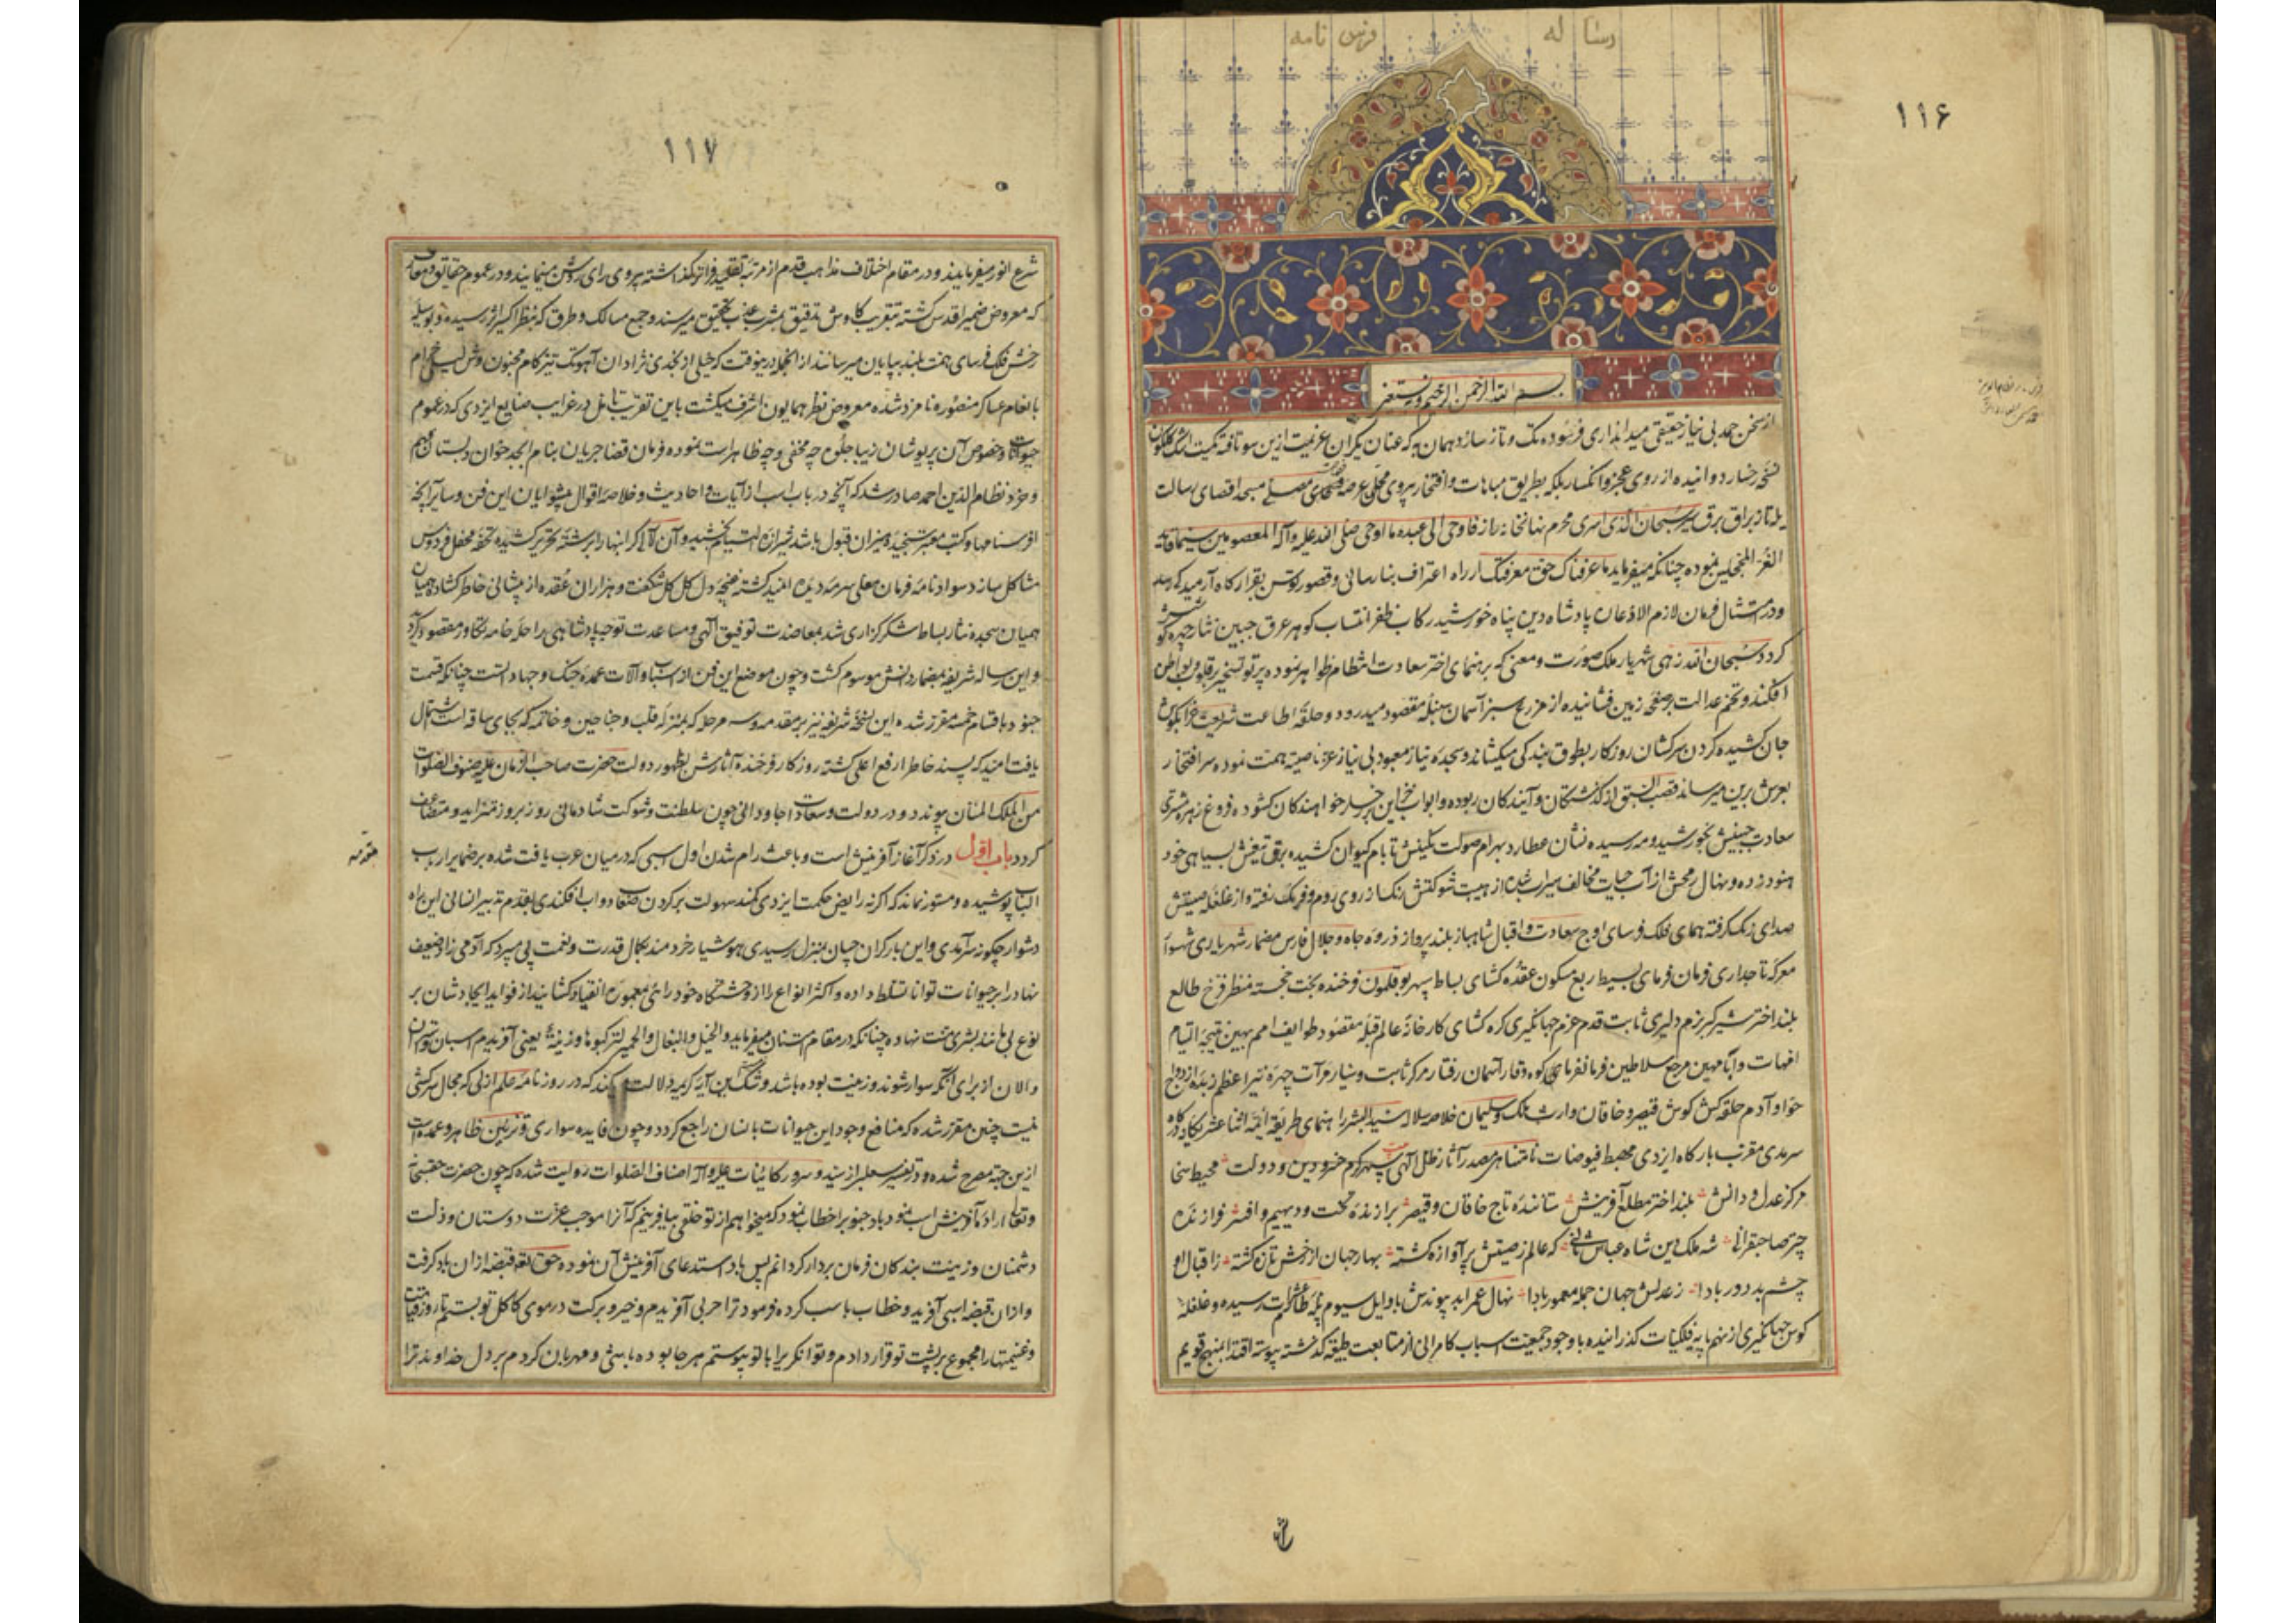 رساله فرس نامه
۱۱۶
بسم الله الرحمن الرحیم و نستعین
از سخن حمد بی نیاز حقیقی میدانداری فرسوده تک و تاز سازد همان به که عنان یکران عزیمت ازین سو تافته کمیت اشک گلگون
رخسار دوانیده از روی عجز و انکسار بلکه بطریق مباهات و افتخار پیروی مصلی مسجد اقصای رسالت
یکه تاز براق برق سیر سبحان الذی اسری محرم نهانخانه راز فاوحی الی عبده ما اوحی صلی الله علیه وآله المعصومین سیما قاید
الغر المحجلین نموده چنانکه میفرماید ما عرفناک حق معرفتک از راه اعتراف بنارسائی و قصور
و در امتثال فرمان لازم الاذعان پادشاه دین پناه خورشید رکاب ظفر انتساب گوهر عرق جبین نثار
گردد سبحان الله زهی شهریار ملک صورت و معنی که برهنمای اختر سعادت انتظام ظواهر نموده پرتو تسخیر بر قلوب و بواطن
افکنده و تخم عدالت بر صفحه زمین فشانیده از مزرع سبز آسمان سنبله مقصود میدرود و حلقه اطاعت شریعت غرا بگوش
جان کشیده گردن سرکشان روزگار بطوق بندگی میکشاند و بسجده نیاز معبود بی نیاز عز ناصیه همت نموده سر افتخار
بعرش برین میرساند قصب السبق از گذشتگان و آیندگان ربوده و ابواب بر رخسار خواهندگان گشوده فروغ زهره مشتری
سعادت جبینش بخورشید و مه رسیده نشان عطارد بهرام صولت نگینش تا بام کیوان کشیده برق تیغش بسیاهی خود
هنود زده و نهال رمحش از آب حیات مخالف سیراب شده از هیبت شوکتش رنگ از روی روم و فرنگ رفته و از غلغله صیتش
صدای زنگ گرفته همای فلک فرسای اوج سعادت و اقبال شاهباز بلند پرواز ذروه جاه و جلال فارس مضمار شهریاری شهسوار
معرکه تاجداری فرمان فرمای بسیط ربع مسکون عقده گشای بساط سپهر بوقلمون فرخنده بخت خجسته منظر فرخ طالع
بلند اختر شیر گیر بزم دلیری ثابت قدم عزم جهانگیری گره گشای کارخانه عالم قبله مقصود طوایف امم بهین نتیجه التیام
امهات و آبا مهین مرجع سلاطین فرمانفرمای کوه وقار آسمان رفتار مرکز ثابت و سیار مرآت چهره نیر اعظم زبده ازدواج
حوا و آدم حلقه کش گوش قیصر و خاقان وارث ملک سلیمان خلاصه سلاله سید البشر راهنمای طریقه ائمه اثنا عشر
سرمدی مقرب بارگاه ایزدی مهبط فیوضات نامتناهی مصدر آثار ظل الهی سپهر کرم خسرو دین و دولت محیط سخا
مرکز عدل و دانش بلند اختر مطلع آفرینش ستاننده تاج خاقان و قیصر برازنده تخت و دیهیم و افسر فرازنده
چتر صاحبقرانی شه ملک دین شاه عباس ثانی که عالم ز صیتش پر آوازه گشته بهار جهان از رخش تازه گشته ز اقبال او
چشم بد دور بادا ز عدلش جهان جمله معمور بادا نهال عمر ابد پیوندش باوایل سیوم پایه عشرات رسیده و غلغله
کوس جهانگیری از نهم پایه فلکیات گذرانیده با وجود جمعیت اسباب کامرانی از متابعت طبیعت گذشته پیوسته اقتدا بمنهج قویم
شرع
۱۱۷
شرع انور میفرمایند و در مقام اختلاف مذاهب قدم از مرتبه تقلید فراتر گذاشته پیروی رای روشن مینمایند و در عموم حقایق و معارف
که معروض ضمیر اقدس گشته بتقریب کاوش تدقیق بمشرب عذب تحقیق میرسند و جمیع مسالک و طرق که بنظر اکسیر اثر رسیده بوسیله
رخش فلک فرسای همت بلند بپایان میرسانند از انجمله درینوقت که خیلی از نجدی نژادان آهو تک تیزگام مجنون وش لیلی خرام
بانعام عساکر منصوره نامزد شده معروض نظر همایون اشرف میگشت باین تقریب تامل در غرایب صنایع ایزدی که در عموم
حیوانات و خصوص آن پریوشان زیبا جلوه چه مخفی و چه ظاهر است نموده فرمان قضا جریان بنام ابجد خوان دبستان فهم
و خرد نظام الدین احمد صادر شد که آنچه در باب اسب از آیات و احادیث و خلاصه اقوال پیشوایان این فن و سایر آنچه
از فرسنامها و کتب معتبر سنجیده میزان قبول باشد شیرازه التیام بخشیده و آن لآلی گرانبها را برشته تحریر کشیده تحفه محفل فردوس
مشاکل سازد سواد نامه فرمان معلی سرمه دیده امید گشته غنچه دل گل گل شگفت و هزاران عقده از پیشانی خاطر گشاده
همیان سجده نثار بساط شکرگزاری شد بمعاضدت توفیق الهی و مساعدت توجه پادشاهی مراحل خامه
و این رساله شریفه بمضمار دانش موسوم گشت و چون موضع این فن از اسباب و آلات عمده جنگ و جهاد است چنانکه قسمت
جنود باقسام خمسه مقرر شده این نسخه شریفه نیز بر مقدمه و سه مرحله که بمنزله قلب و جناحین و خاتمه که بجای ساقه است اشتمال
یافت امید که پسند خاطر ارفع اعلی گشته روزگار فرخنده آثارش بظهور دولت حضرت صاحب الزمان علیه صنوف الصلوات
من الملک المنان پیوندد و در دولت و سعادت جاودانی چون سلطنت و شوکت شادمانی روز بروز متزاید و متضاعف
گردد باب اول در ذکر آغاز آفرینش است و باعث رام شدن اول اسبی که در میان عرب یافت شده بر ضمایر ارباب
مقدمه
الباب پوشیده و مستور نماند که اگر نه رایض حکمت ایزدی کمند سهولت بر گردن صعاب دواب افکندی بقدم تدبیر انسانی این راه
دشوار چگونه سر آمدی و این بار گران چسان بمنزل رسیدی هوشیار خردمند بکمال قدرت و نعمت پی میبرد که آدمی زاد ضعیف
نهاد را بر حیوانات توانا تسلط داده و اکثر انواع را از وحشتگاه خود رائی بمعموره انقیاد کشانید از فواید ایجادشان بر
نوع بی مانند بشری منت نهاده چنانکه در مقام امتنان میفرماید و الخیل و البغال و الحمیر لترکبوها و زینة یعنی آفریدم اسبان و استران
و الاغان از برای آنکه سوار شوند و زینت بوده باشد و شک این آیه کریمه دلالت میکند که در روزنامه علم ازلی که مجال سرکشی
نیست چنین مقرر شده که منافع وجود این حیوانات بانسان راجع گردد و چون فایده سواری و تزیین ظاهر و عمده است
ازین جهة مصرح شده و در تفسیر ثعلبی از سید و سرور کائنات علیه وآله اصناف الصلوات روایت شده که چون حضرت حقسبحانه
و تعالی اراده آفرینش اسب نمود باد جنوب را خطاب نمود که میخواهم از تو خلقی بیافرینم که آنرا موجب عزت دوستان و ذلت
دشمنان و زینت بندگان فرمان بردار گردانم پس باد استدعای آفرینش آن نموده حق تعالی قبضه از ان باد گرفت
و ازان قبضه اسبی آفرید و خطاب باسب کرده فرمود ترا عربی آفریدم و خیر و برکت در موی کاکل تو بستم تا روز قیامت
و غنیمتها را مجموع بر پشت تو قرار دادم و توانگری را با تو پیوستم هر جا بوده باشی و مهربان کردم بر دل خداوند ترا